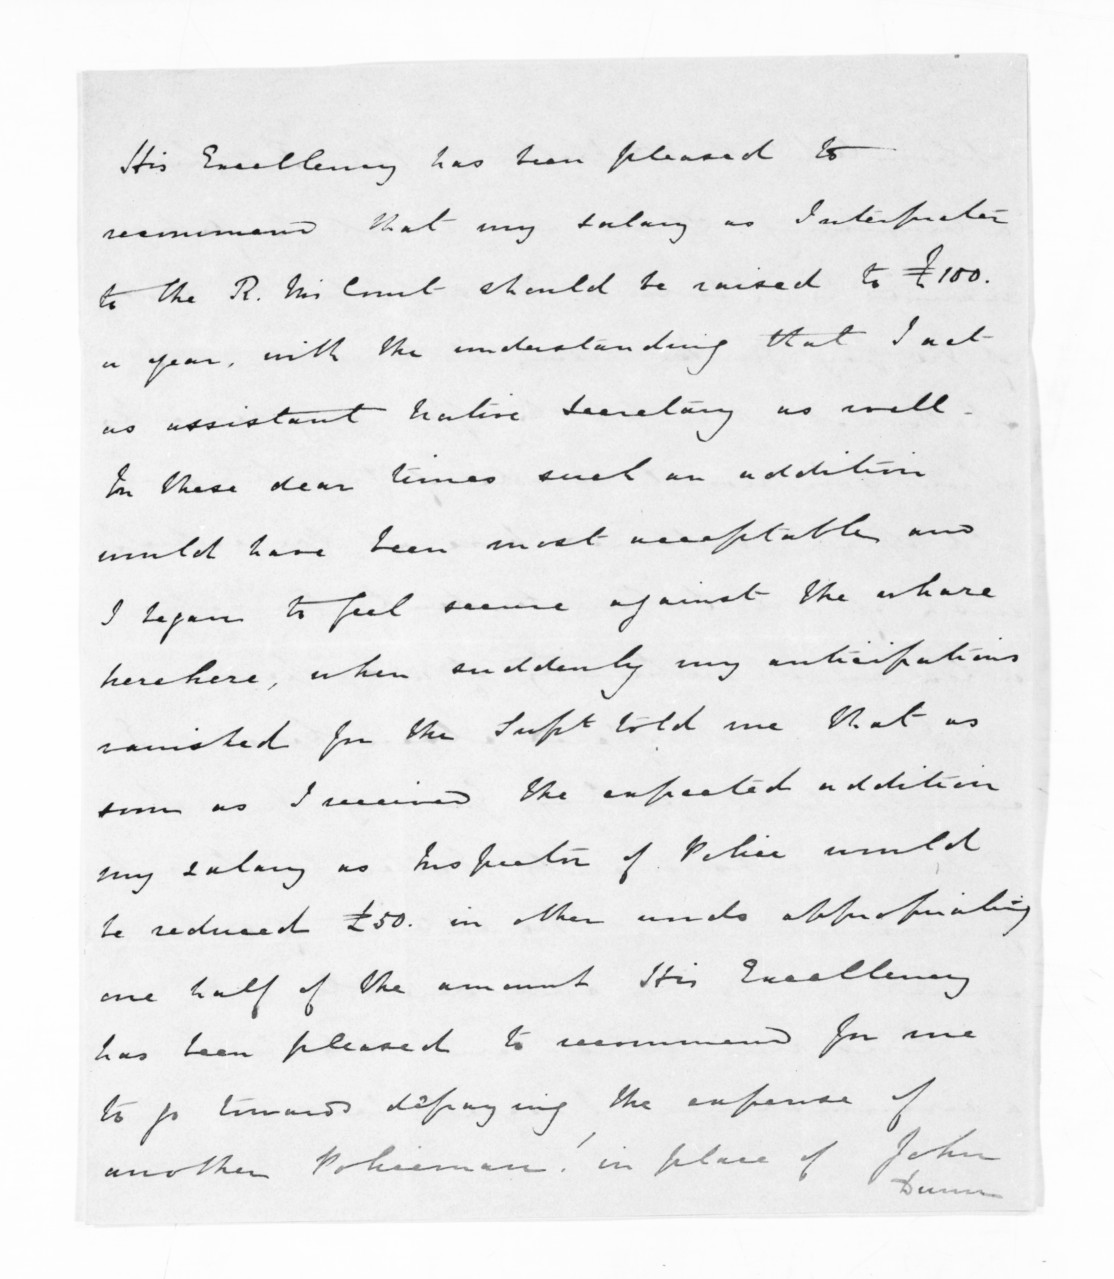 His Excellency has been pleased to
recommend that my salary as Interpreter
to the R. M's Court should be raised to £100.
a year, with the understanding that I act
as assistant Native Secretary as well -
In these dear times such an addition
would have been most acceptable and
I began to feel secure against the whare
herehere, when suddenly my anticipations
vanished for the Supt told me that as
soon as I received the expected addition
my salary as Inspector of Police would
be reduced £50. in other words appropriating
one half of the amount His Excellency
has been pleased to recommend for me
to go towards defraying the expense of
another Policeman! in place of John
Dunn